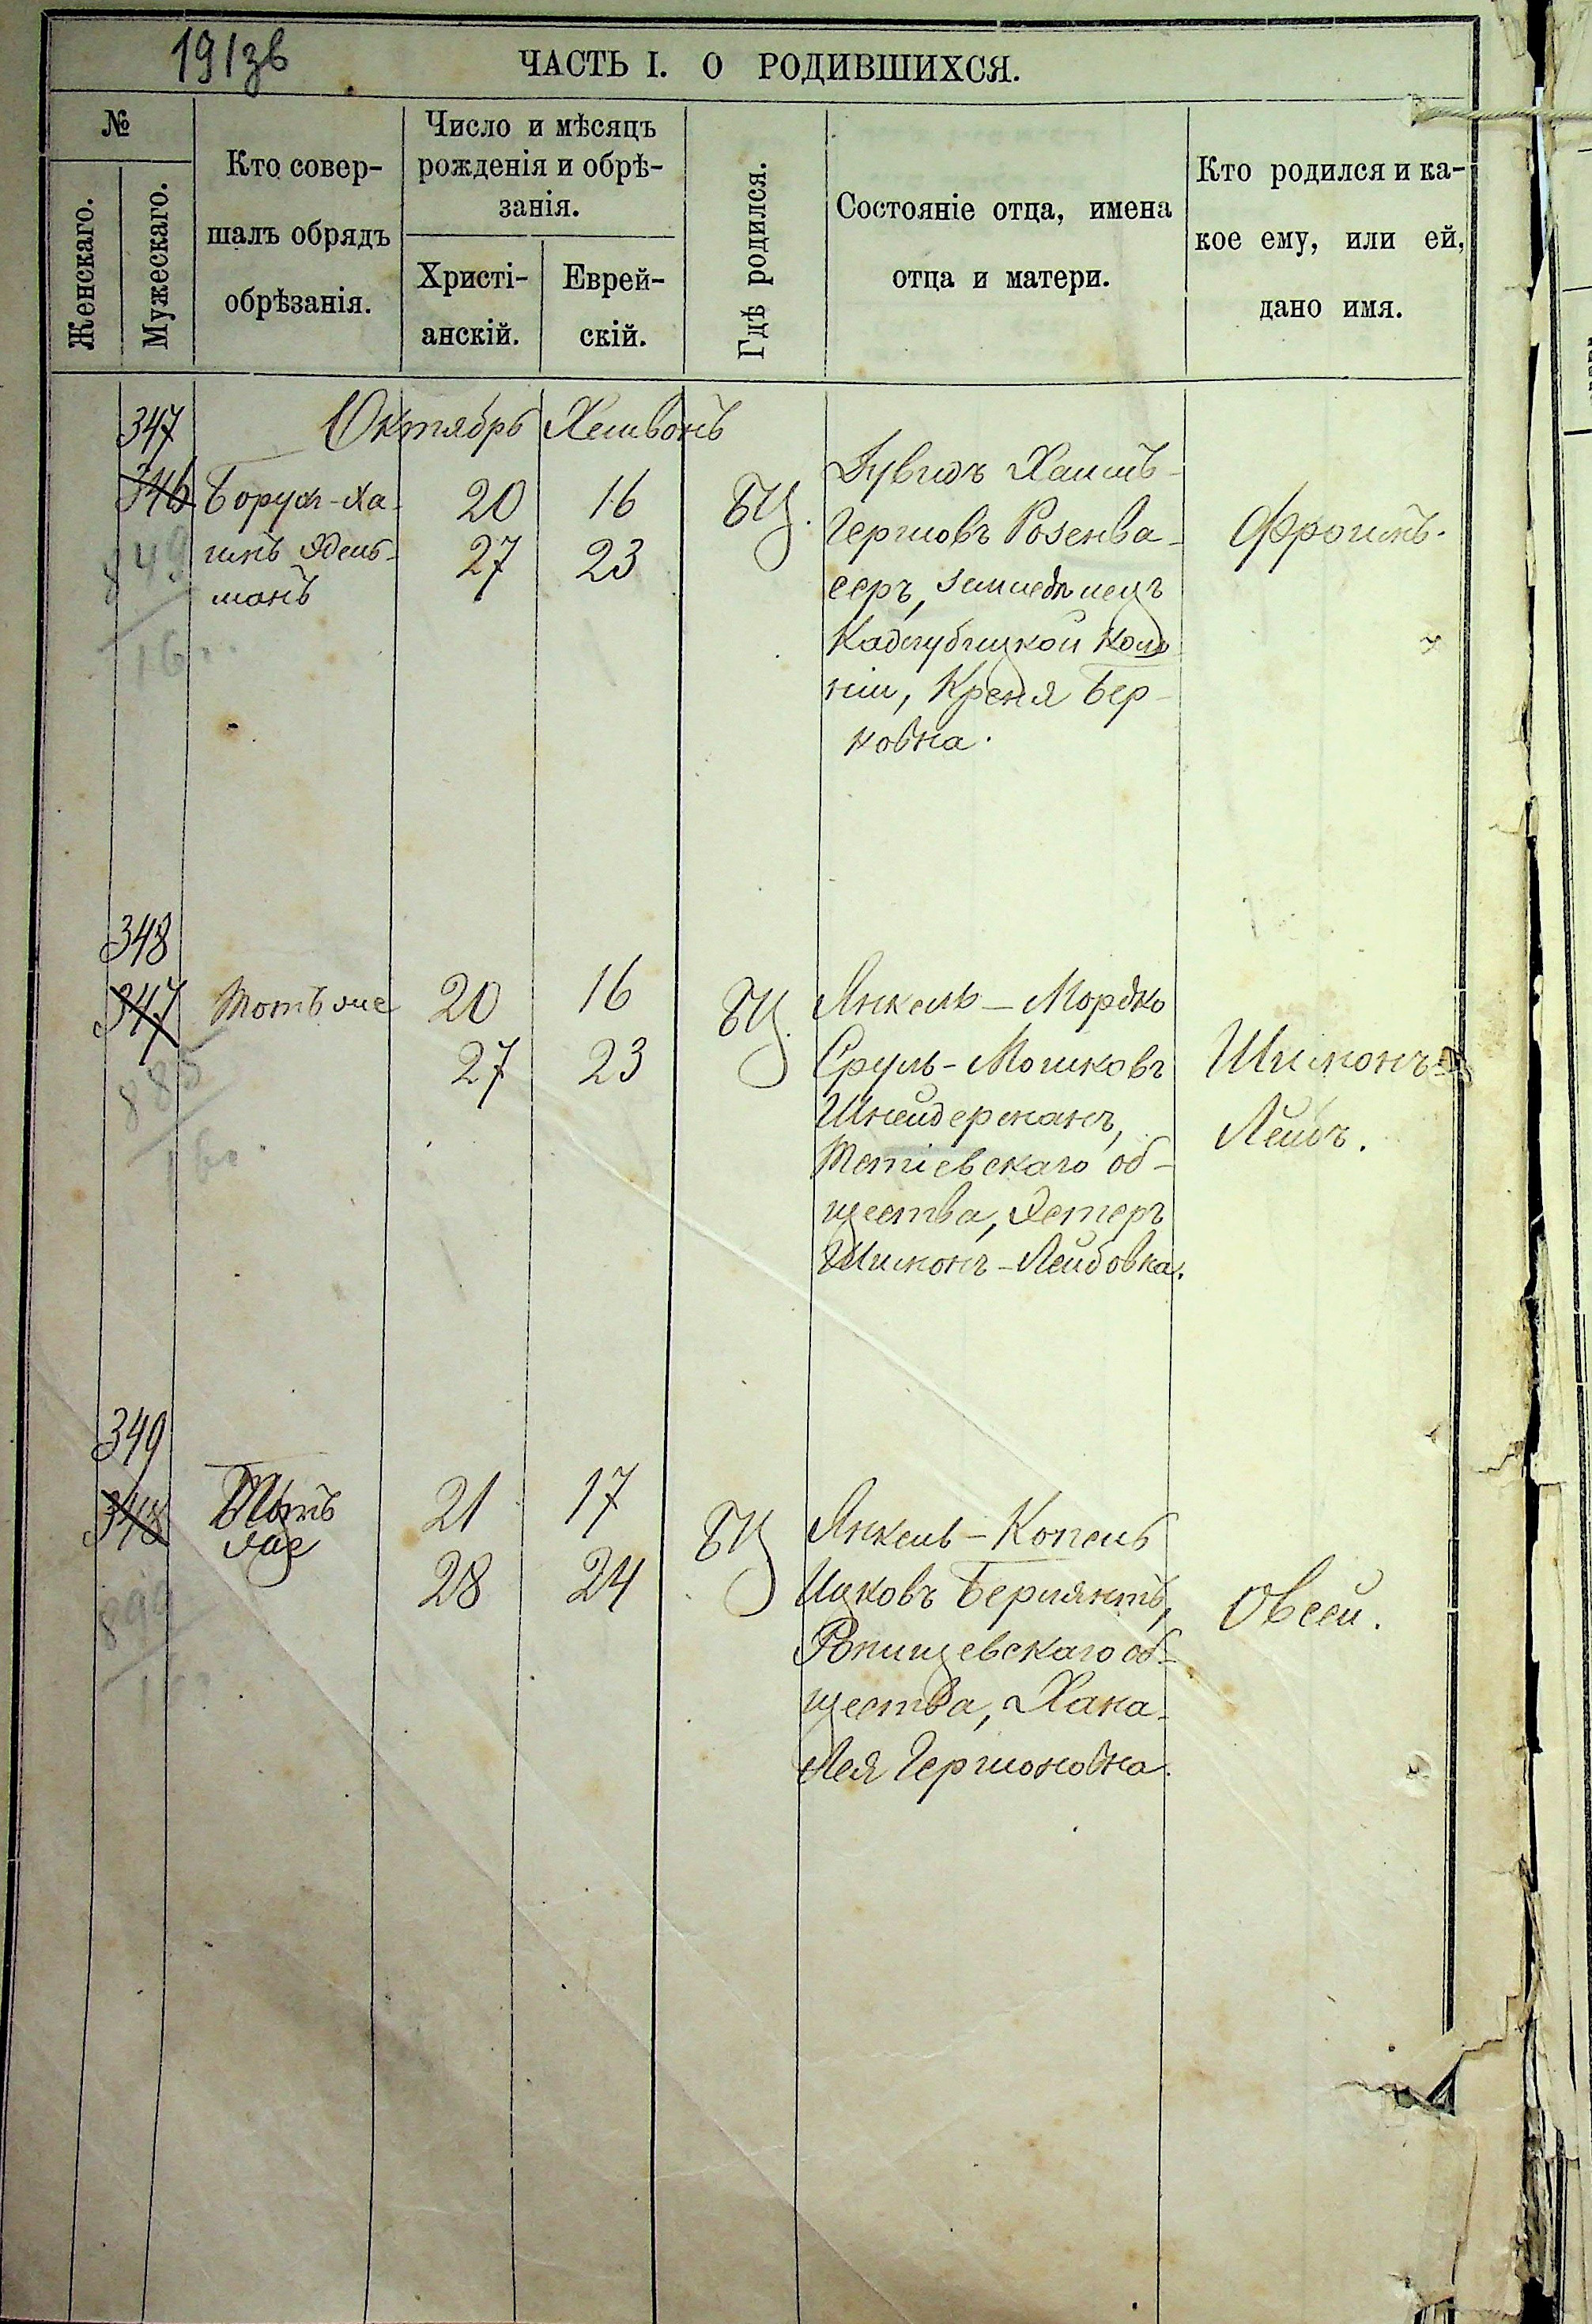 191зв
ЧАСТЬ I. О РОДИВШИХСЯ.
№
Женскаго.
Мужескаго.
Кто совер-
шалъ обрядъ
обрѣзанія.
Число и мѣсяцъ
рожденія и обрѣ-
занія.
Христі-
анскій.
Еврей-
скій.
Гдѣ родился.
Состояніе отца, имена
отца и матери.
Кто родился и ка-
кое ему, или ей,
дано имя.
Октябрь Хешвонъ
347
346
Борухъ-Ха-
имъ Эдель-
манъ
20 16
27 23
БЦ.
Дувидъ Хаимъ-
Гершовъ Розенва-
серъ, земледѣлецъ
Кадлубицкой коло-
ніи, Креня Бер-
ковна.
Фроимъ.
348
347
Тотъ же
20 16
27 23
БЦ.
Янкель-Мордко
Сруль-Мошковъ
Шнейдерманъ,
Тетіевскаго об-
щества, Эстеръ
Шимонъ-Лейбовна.
Шимонъ-
Лейбъ.
349
348
Тотъ
же
21 17
28 24
БЦ
Янкель-Копель
Ицковъ Берлянтъ,
Ропищевскаго об-
щества, Хана-
Лея Гершоновна.
Овсей.